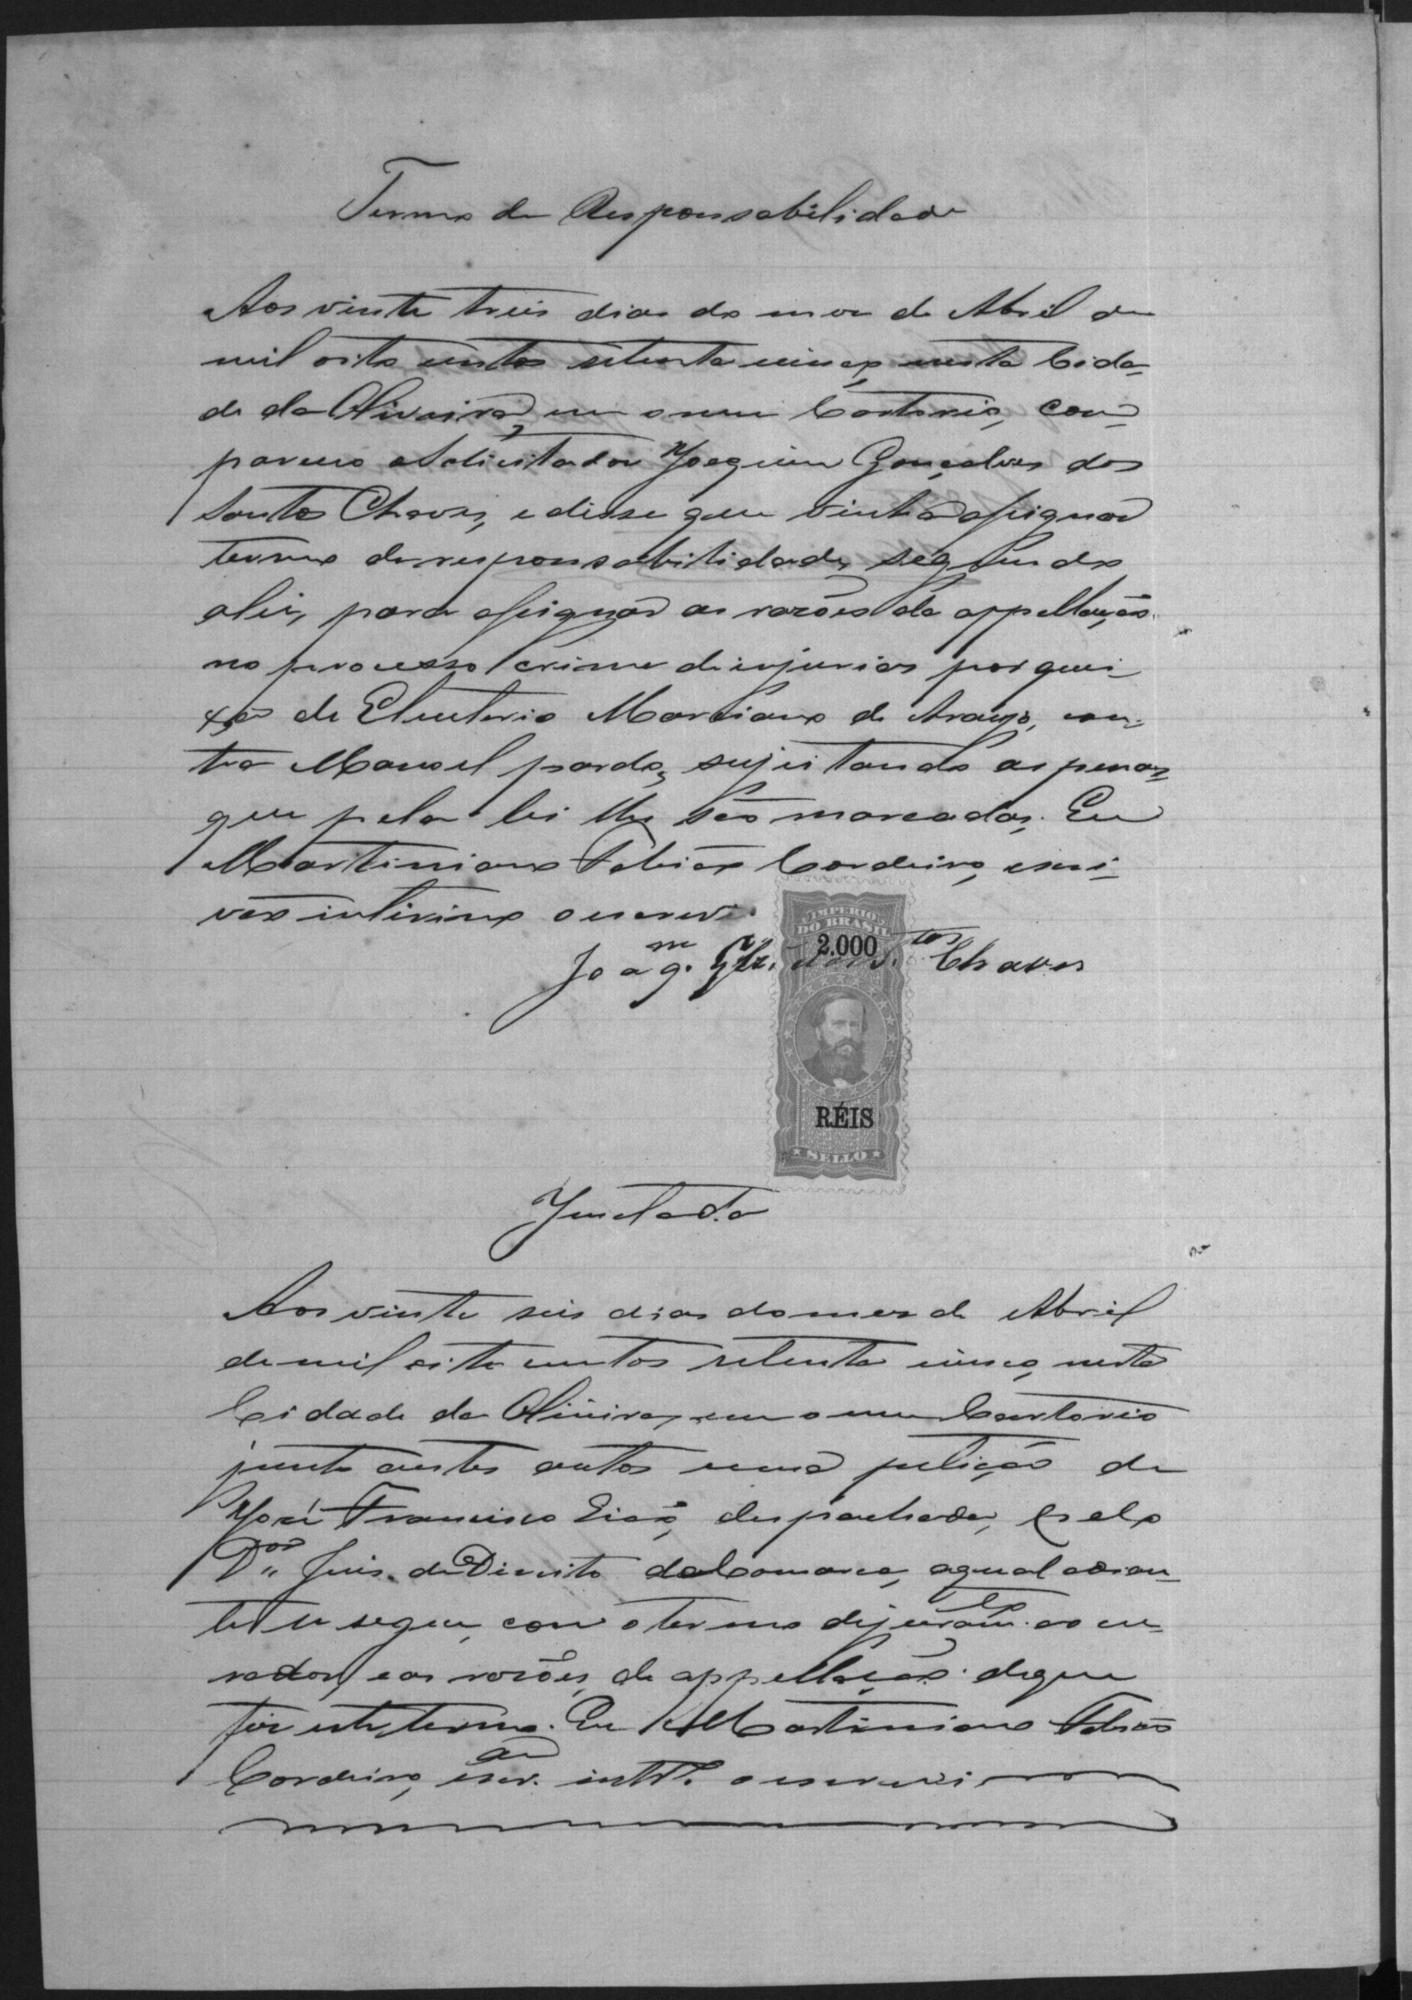 Termo de Responsabilidade
Aos vinte treis dias do mes de Abril de
mil oito centos setenta cinco, nesta Cida-
de da Oliveira, em o meu Cartorio, com-
pareceo o Solicitador Joaquim Gonçalves dos
Santos Chaves, e disse que vinha assignar
termo de responsabilidade, segundo
a lei, para assignar as rasões da appellação
no processo crime de injurias por quei-
xa de Eleuterio Marciano de Araujo, con-
tra Manoel pardo, sujeitando as penas
que pela lei lhe são marcadas. Eu
Martiniano Tobias Cordeiro, escri-
vão interino o escrevi.
Joaq.m Glz. dos S.tos Chaves
IMPERIO
DO BRASIL
2.000
RÉIS
SELLO
Juntada
Aos vinte seis dias do mes de Abril
de mil oito centos setenta cinco, nesta
Cidade da Oliveira, em o meu Cartorio
junto a estes autos uma petição de
José Francisco despachada, pelo
D.or Juis de Direito da Comarca, a qual adian-
te se segue, com o termo de juram.to ao cu-
rador, e as rasões de appellação: de que
fiz este termo. Eu Martiniano Tobias
Cordeiro, escr.am intr.o o escrevi